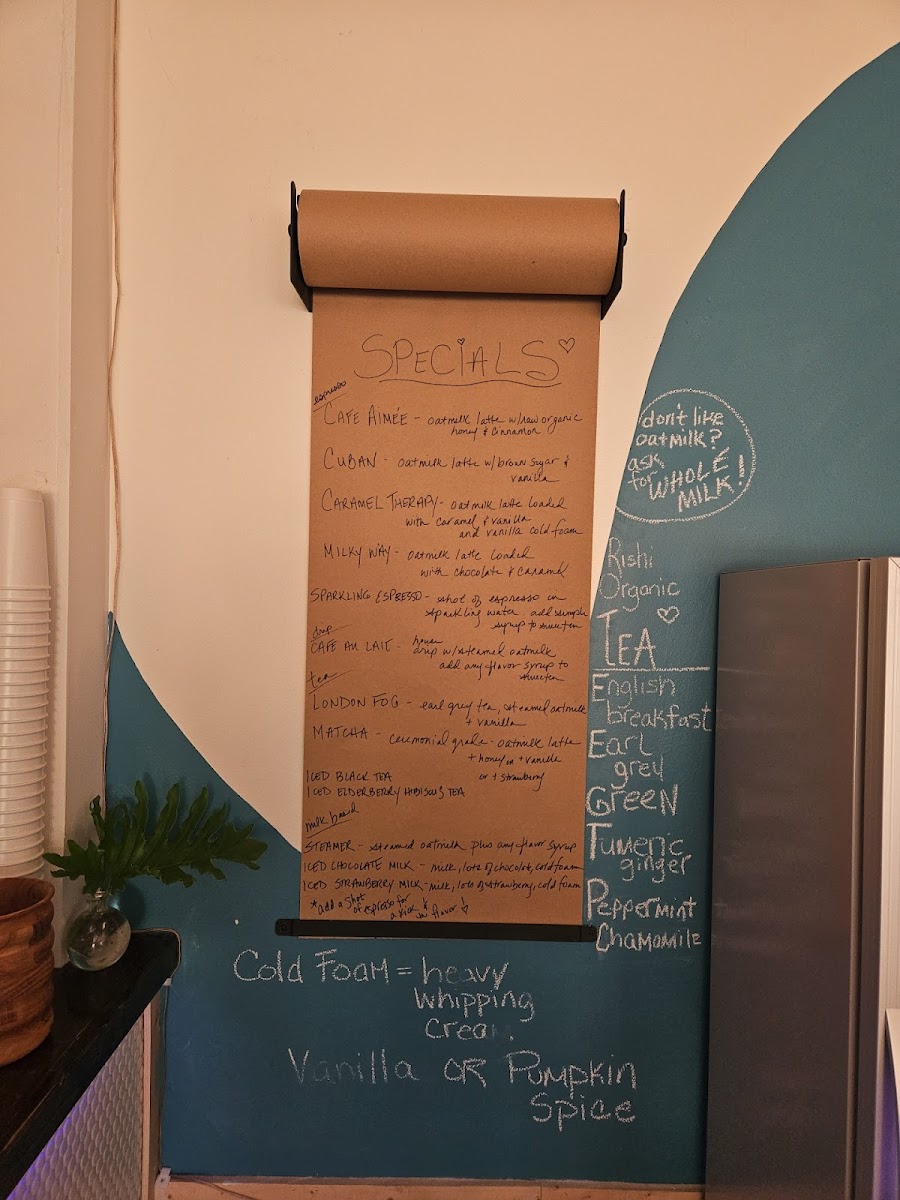 SPECiALS
espresso
CAFE AIMÉE - oatmilk latte w/raw organic
honey & cinnamon
CUBAN - oatmilk latte w/brown sugar &
vanilla
CARAMEL THERAPY - oatmilk latte loaded
with caramel & vanilla
and vanilla cold foam
MILKY WAY - oatmilk latte loaded
with chocolate & caramel
SPARKLING ESPRESSO - shot of espresso in
sparkling water. add simple
syrup to sweeten
drip
CAFE AU LAIT - house
drip w/steamed oatmilk
add any flavor syrup to
sweeten
tea
LONDON FOG - earl grey tea, steamed oatmilk
+ vanilla
MATCHA - ceremonial grade - oatmilk latte
+ honey or + vanilla
or + strawberry
ICED BLACK TEA
ICED ELDERBERRY HIBISCUS TEA
milk based
STEAMER - steamed oatmilk plus any flavor syrup
ICED CHOCOLATE MILK - milk, lots of chocolat, cold foam
ICED STRAWBERRY MILK - milk, lots of strawberry, cold foam
*add a shot
of espresso for
a kick & flavor!
don't like
oatmilk?
ask
for WHOLE
MILK!
Rishi
Organic
TEA
English
breakfast
Earl
grey
GReeN
Tumeric
ginger
PePPeRMiNT
CHaMOMiLe
Cold FoaM = heavy
whipping
cream.
Vanilla OR PuMpkin
Spice